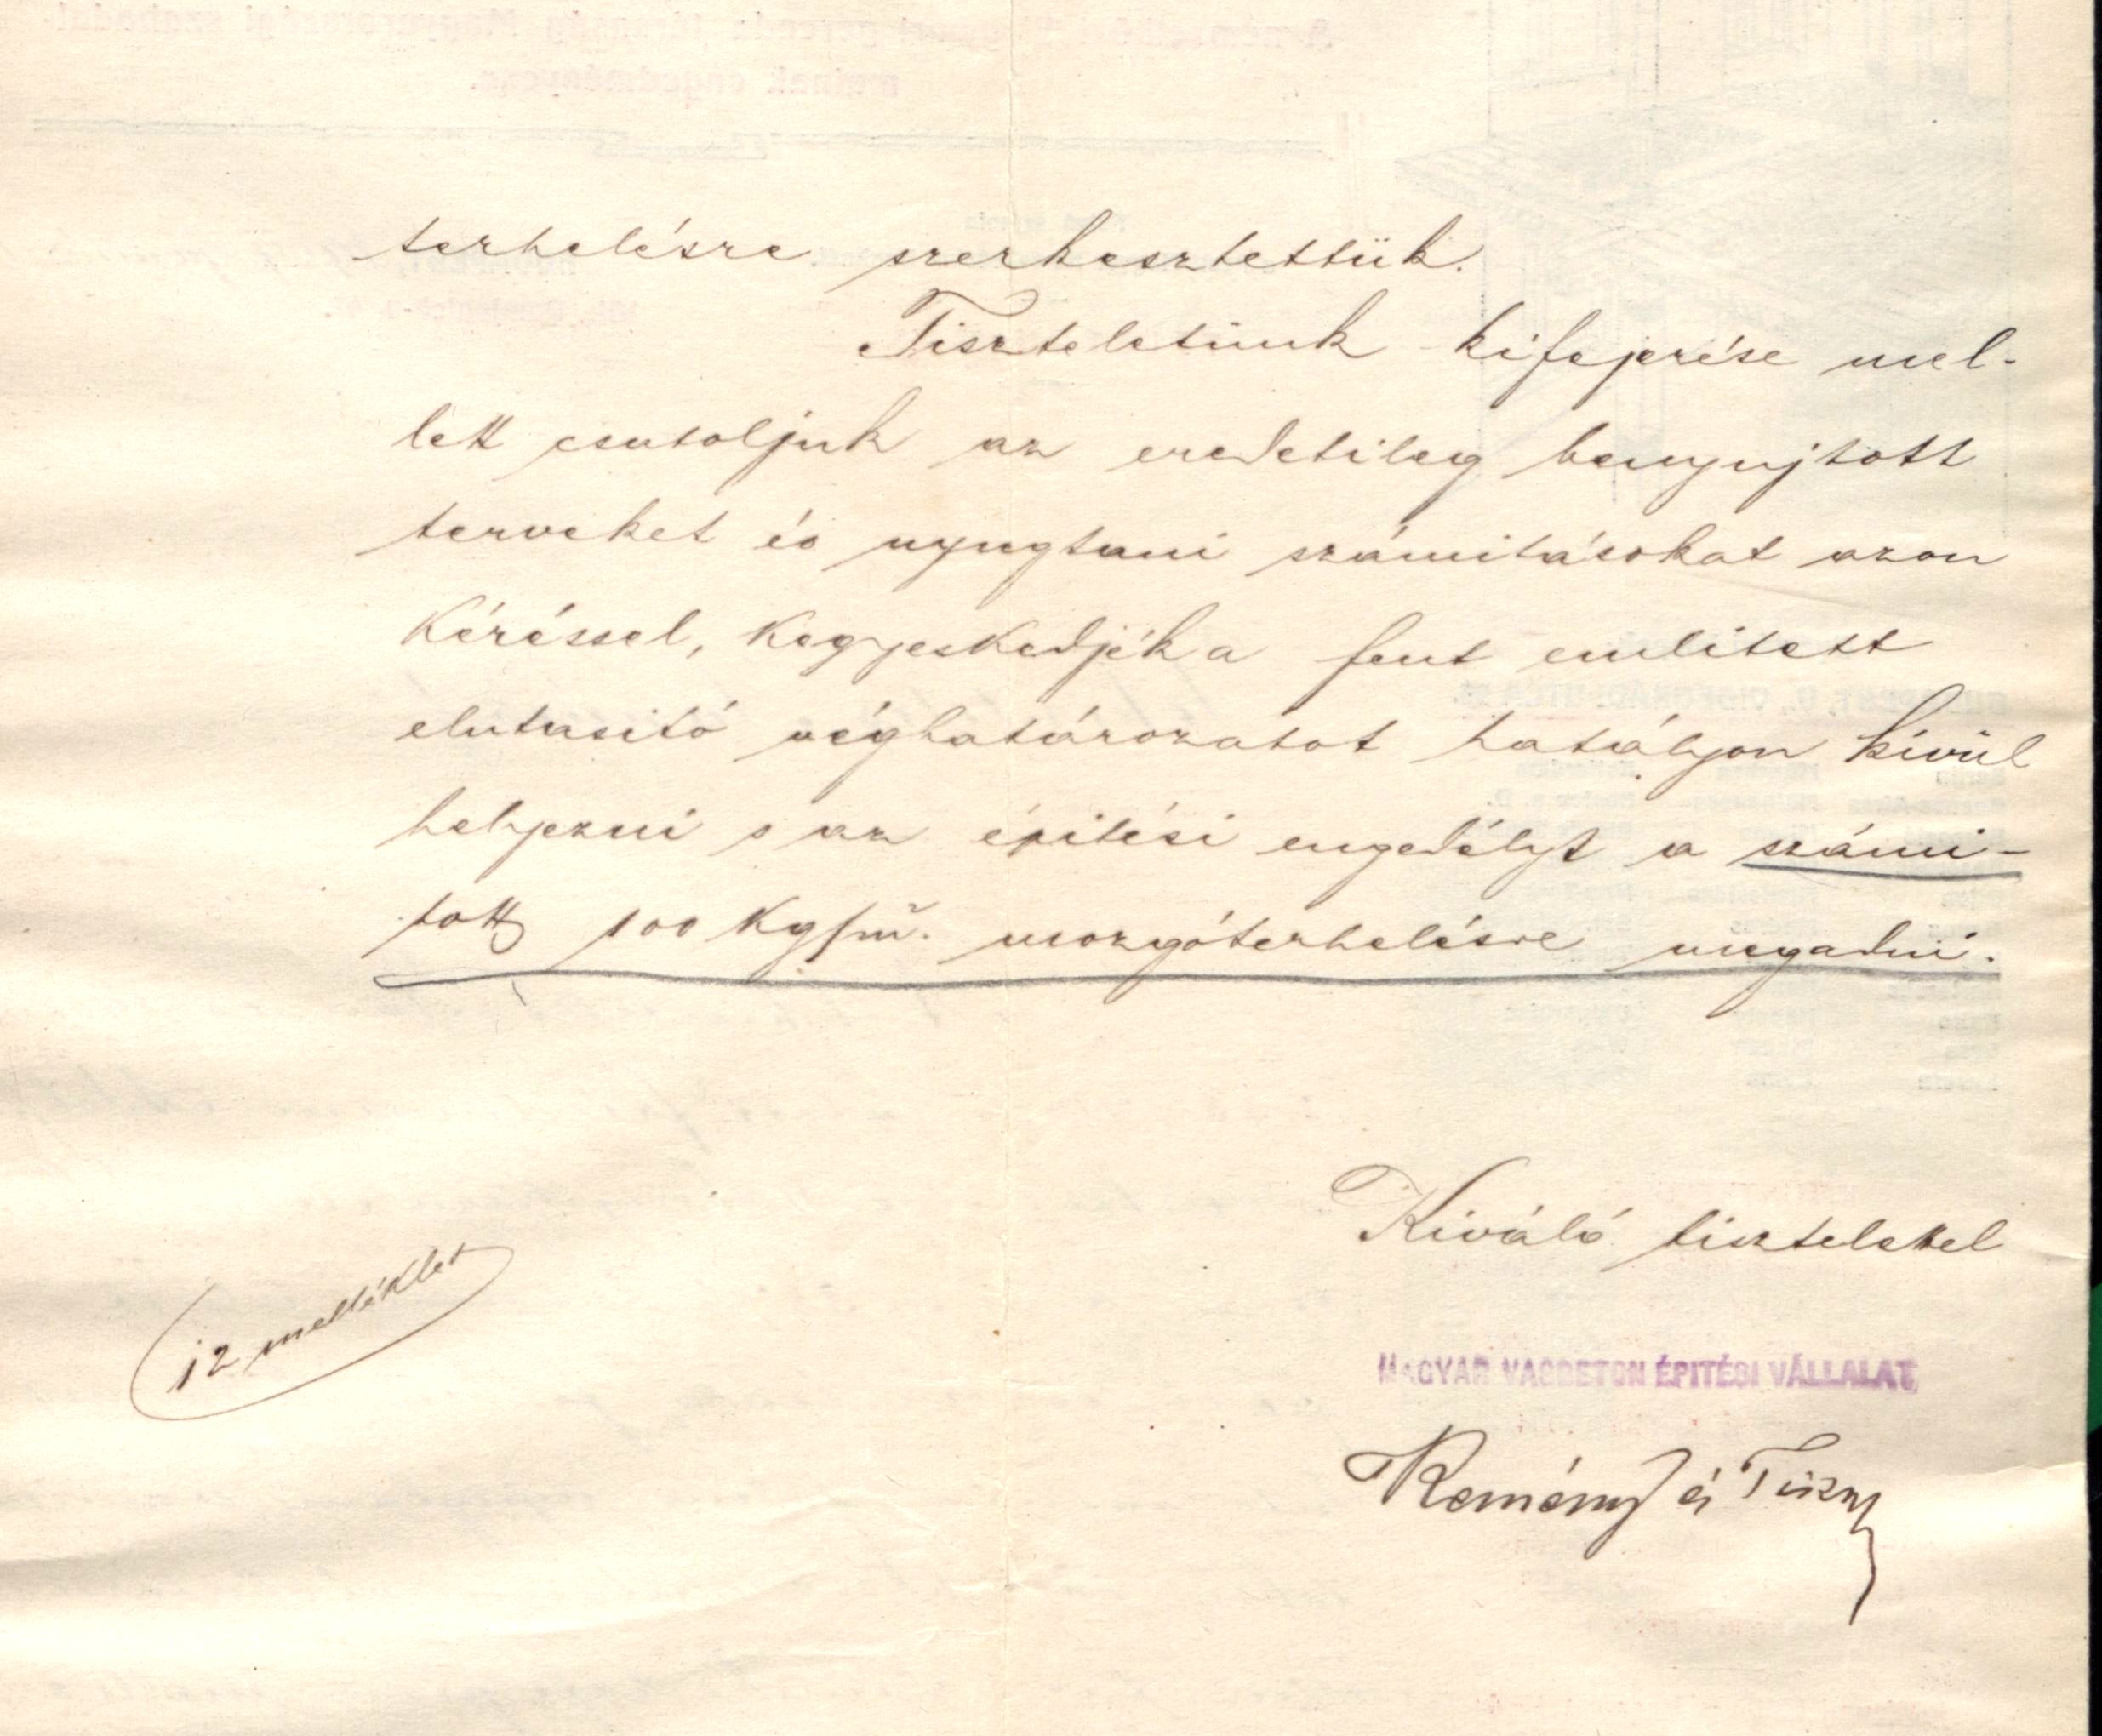 terhelésre szerkesztettük.
Tiszteletünk kifejezése mel-
lett csatoljuk az eredetileg benyujtott
terveket és nyugtani számitásokat azon
kéréssel, kegyeskedjék a fent emlitett
elutasitó véghatározatot hatályon kívül
helyezni s az épitési engedélyt a számi-
tott 100 kg/m². mozgóterhelésre megadni.
Kiváló tisztelettel
12 melléklet
MAGYAR VASBETON ÉPITÉSI VÁLLALAT
Reményi és Tiszay